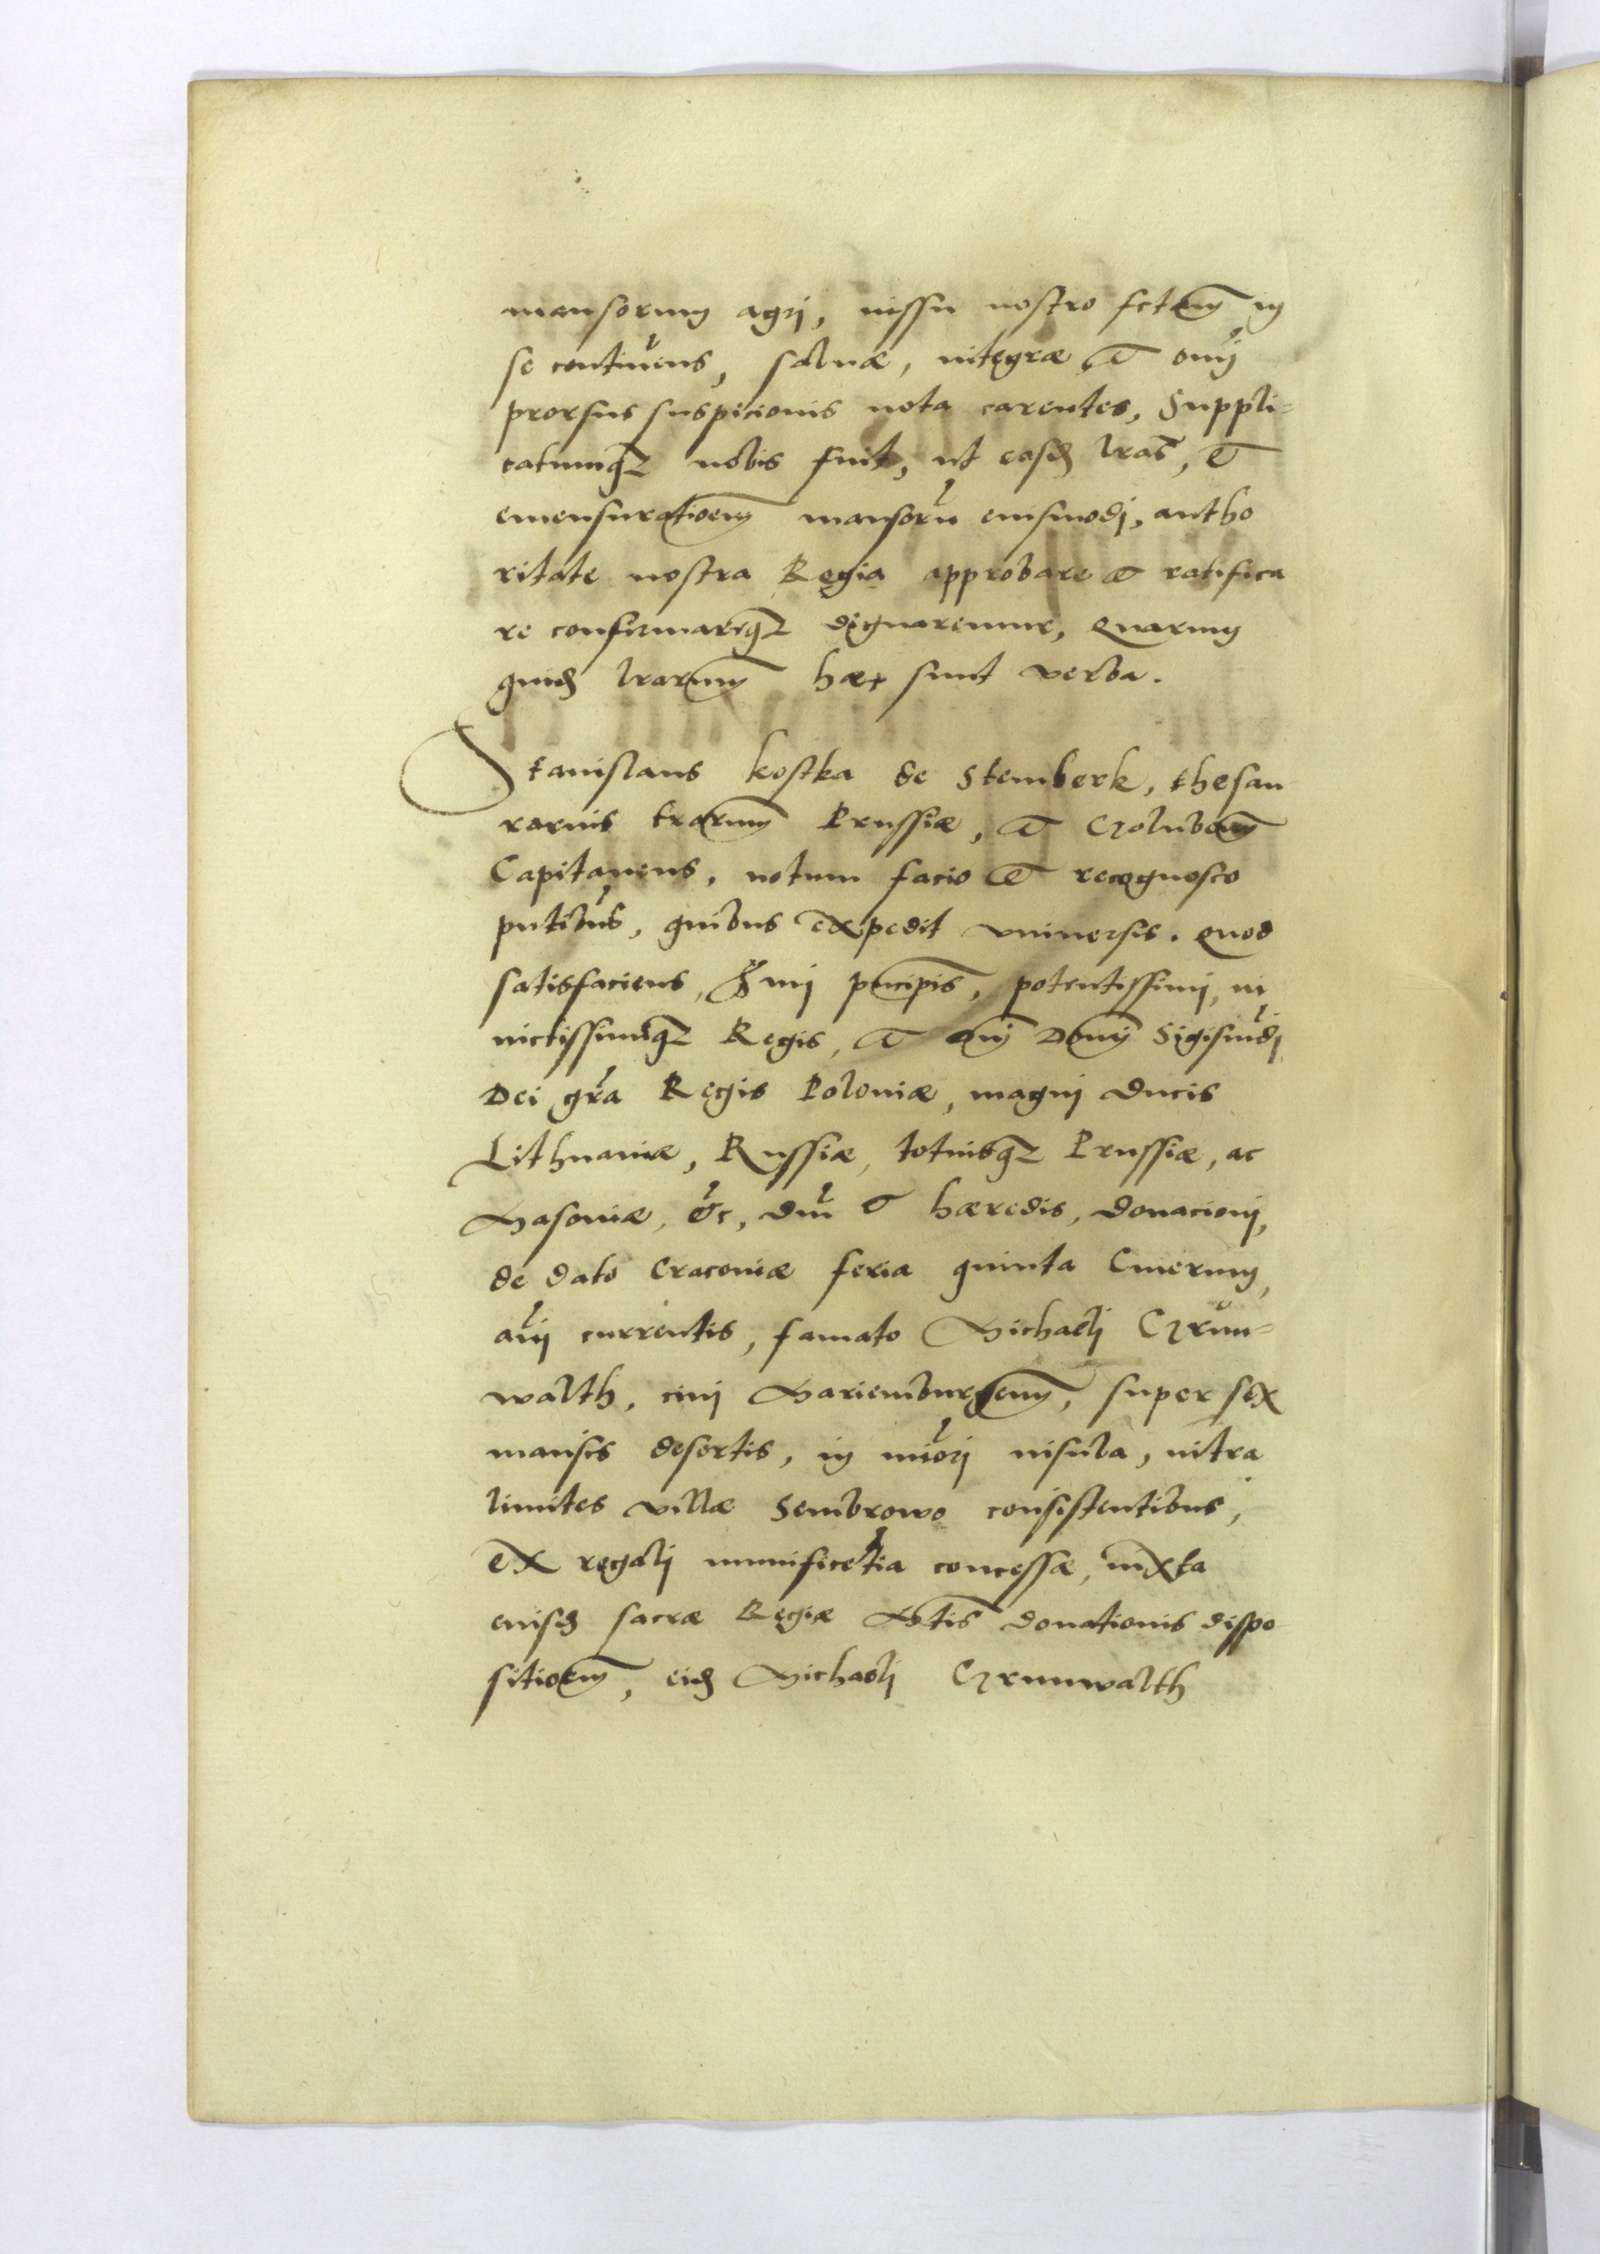 mansorum agri, iussu nostro fctam in
se continens, saluæ, integræ et omni
prorsus suspicionis nota carentes, Suppli-
catumqz nobis fuit, ut easd lras, et
emensurationem mansoru eiusmodi, autho
ritate nostra Regia approbare et ratifica
re confirmareqz dignaremur, Quarum
quid lrarum hæc sunt verba.
Stanislaus kostka de Stemberk, thesau
rarius trarum Prussiæ, et Golubem
Capitaneus, notum facio et recognosco
pntibus, quibus expedit vniuersis. Quod
satisfaciens, pncipis, potentissimi, in
uictissimiqz Regis, et Dni Domini Sigismdi
Dei gra Regis Poloniæ, magni Ducis
Lithuaniæ, Russiæ, totiusqz Prussiæ, ac
Masouiæ, etc, dni et hæredis, donacioni,
de dato Cracouiæ feria quinta Cinerum,
anni currentis, famato Michaeli Grun-
walth, ciui Mariemburgem, super sex
mansis desertis, in minori insula, intra
limites villæ Sembrowo consistentibus,
ex regali munificetia concessæ, iuxta
eiusd sacræ Regiæ Mtis donationis dispo
sitionem, eid Michaeli Grunwalth